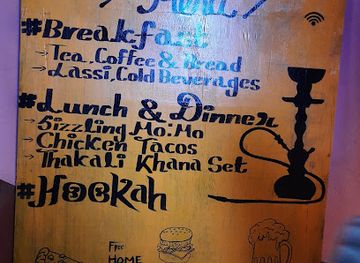 Menu
#Breakfast
→Tea, Coffee & Bread
→Lassi, Cold Beverages
#Lunch & Dinner
→Sizzling Mo:Mo
→Chicken Tacos
→Thakali Khana Set
#Hookah
Free
HOME